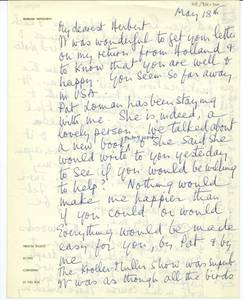 May 18th
My dearest Herbert
It was wonderful to get your letter
on my return from Holland &
to know that you are well &
happy. You seem so far away
in USA.
Pat Loman has been staying
with me. She is, indeed, a
lovely person. We talked about
a new book, & she said she
would write to you yesterday
to see if you would be willing
to help? Nothing would
make me happier than
if you could or would
Everything would be made
easy for you, by Pat & by
me
The Kroller Muller show was superb
It was as though all the birds